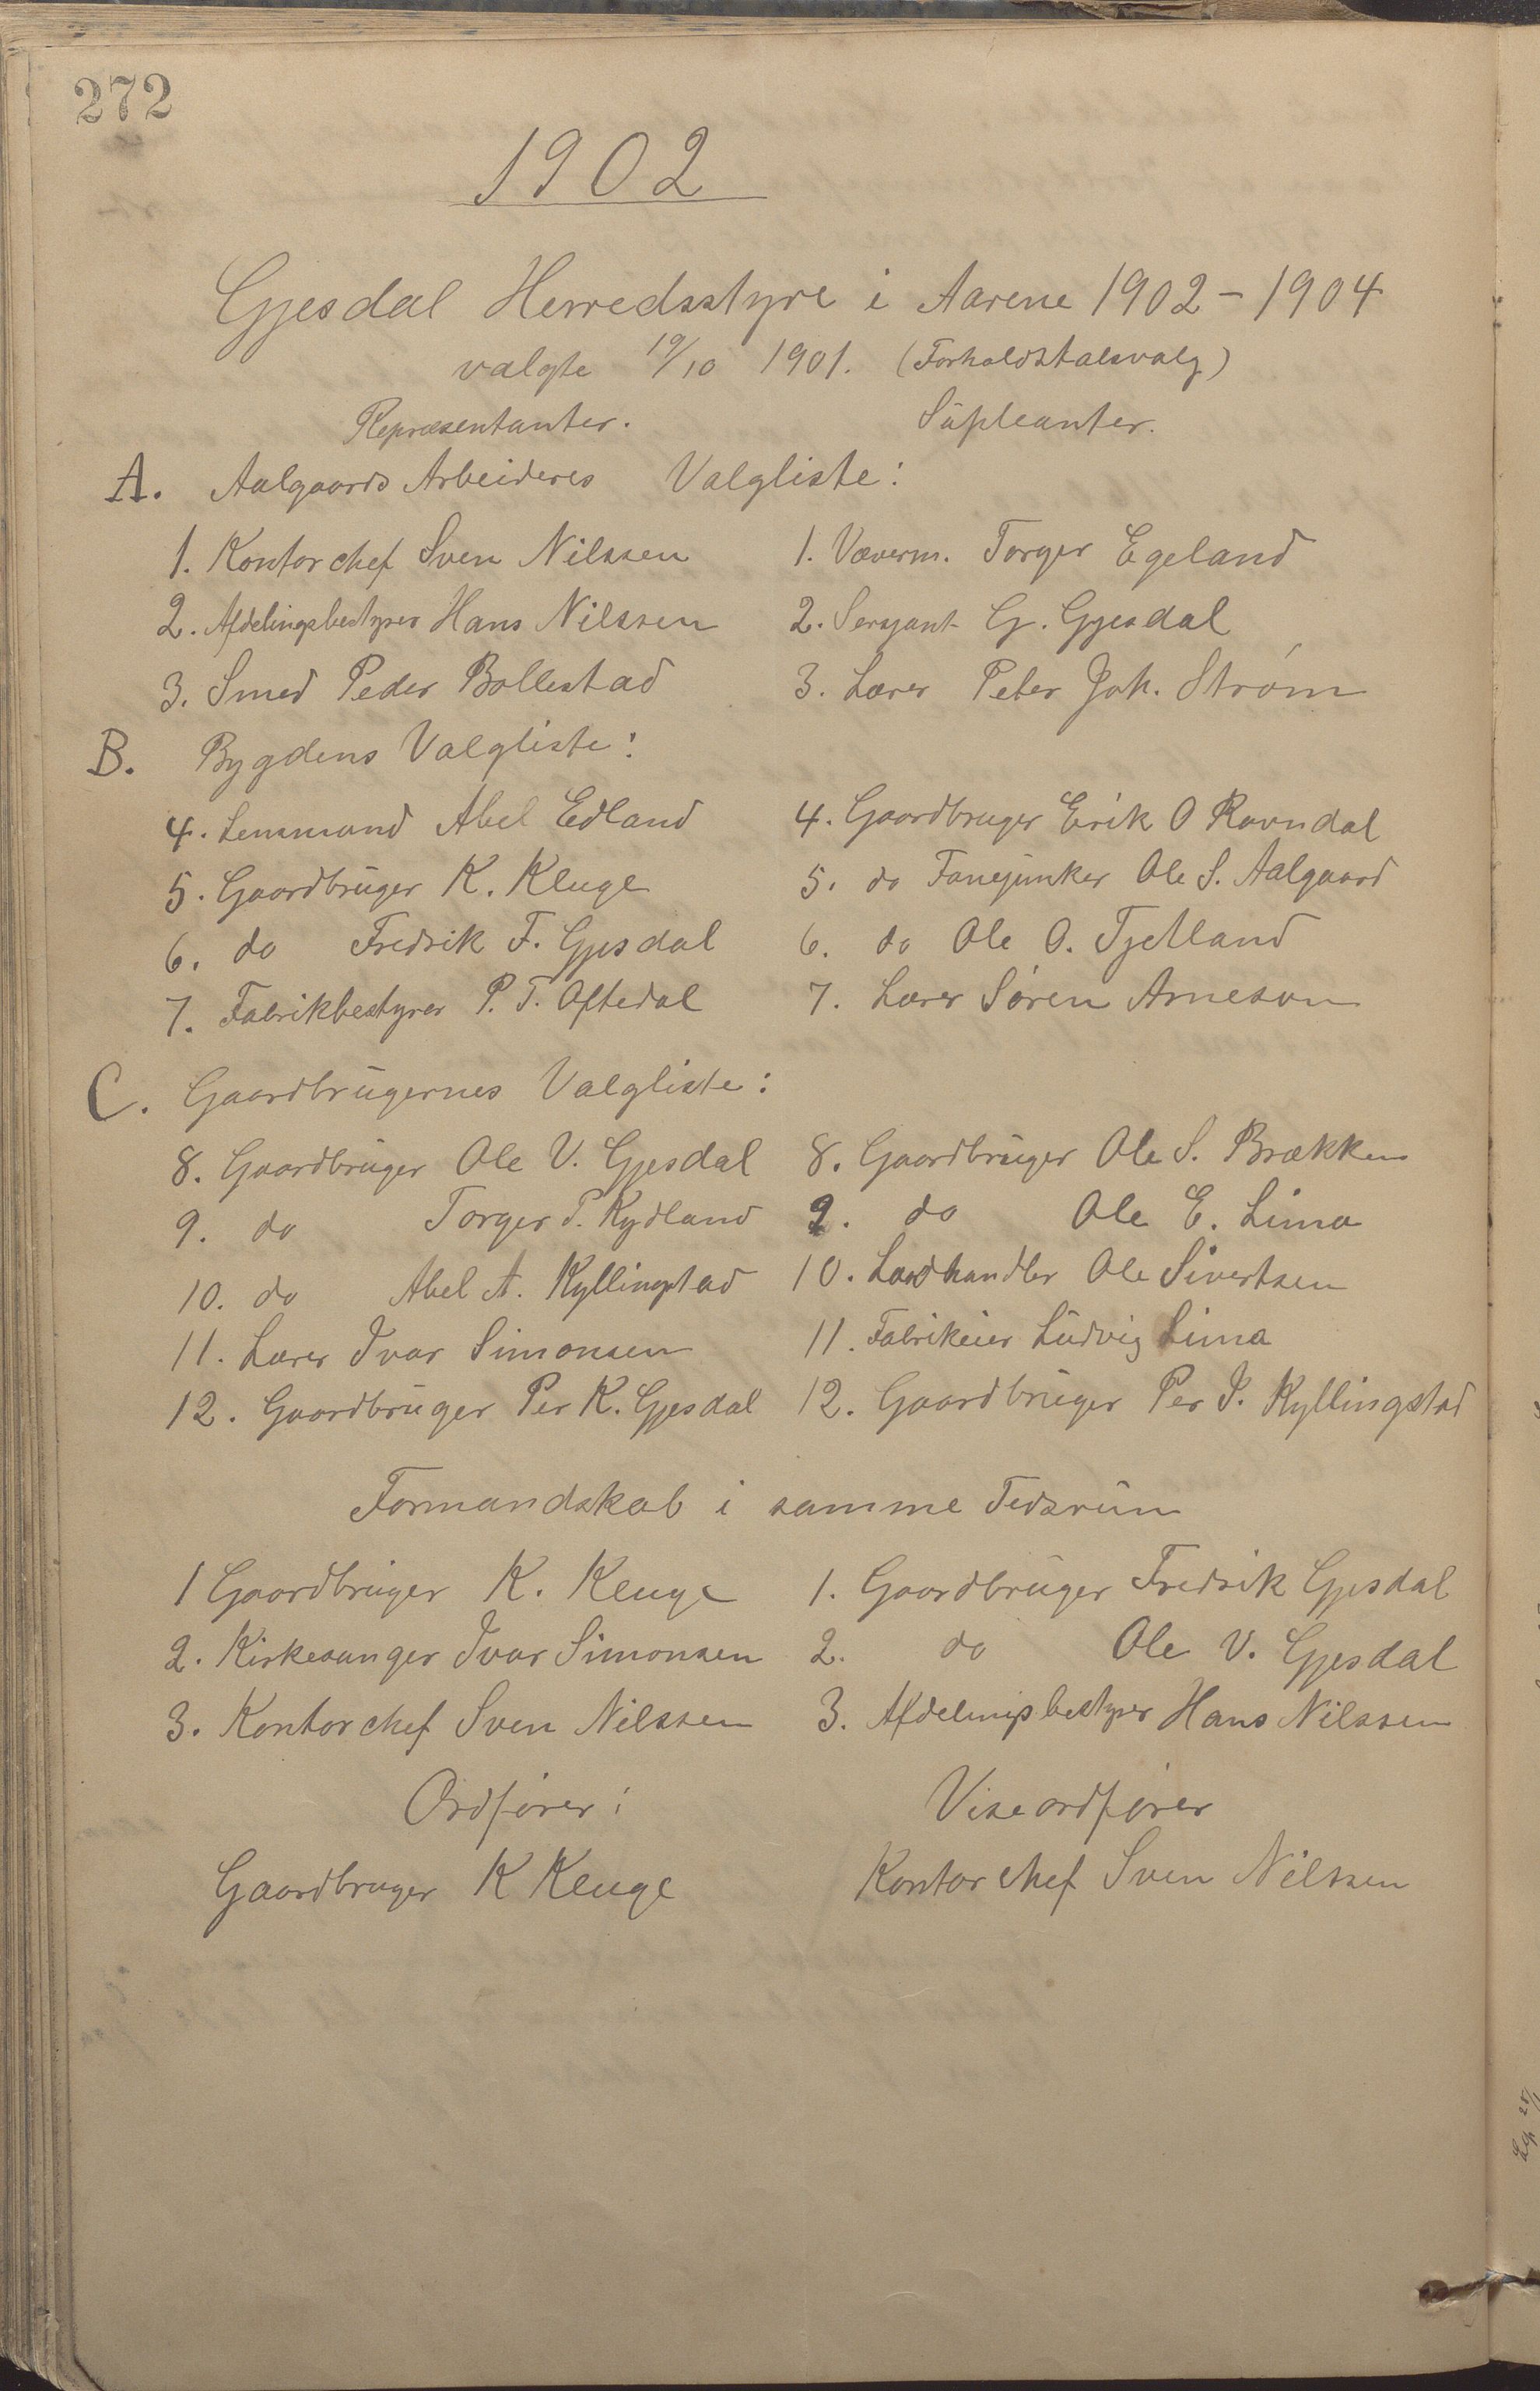 272
1902
Gjesdal Herredsstyre i Aarene 1902-1904
valgte 19/10 1901. (Forholdstalsvalg)
Repræsentanter. Súpleanter.
A. Aalgaards Arbeideres Valgliste:
1. Kontorchef Sven Nilssen 1. Væverm. Torger Egeland
2. Afdelingsbestyrer Hans Nilssen 2. Sersjant G. Gjesdal
3. Smed Peder Bollestad 3. Lærer Peter Joh. Strøm
B. Bygdens Valgliste:
4. Lensmand Abel Edland 4. Gaardbruger Eirik O Ravndal
5. Gaardbrúger K. Kluge 5. do Fanejunker Ole S. Aalgaard
6. do Fredrik F. Gjesdal 6. do Ole O. Tjetland
7. Fabrikbestyrer P. T. Oftedal 7. Lærer Søren Arneson
C. Gaardbrúgernes Valgliste:
8. Gaardbrúger Ole V. Gjesdal 8. Gaardbrúger Ole S. Brækken
9. do Torger T. Kydland 9. do Ole E. Lima
10. do Abel A. Kyllingstad 10. Landhandler Ole Sivertsen
11. Lærer Ivar Simonsen 11. Fabrikeier Lúdvig Lima
12. Gaardbrúger Per K. Gjesdal 12. Gaardbrúger Per I. Kyllingstad
Formandskab i samme Tidsrúm
1 Gaardbrúger K. Kluge 1. Gaardbrúger Fredrik Gjesdal
2. Kirkesanger Ivar Simonsen 2. do Ole V. Gjesdal
3. Kontorchef Sven Nilssen 3. Afdelingsbestyrer Hans Nilssen
Ordfører: Viseordfører
Gaardbruger K Kluge Kontorchef Sven Nilssen